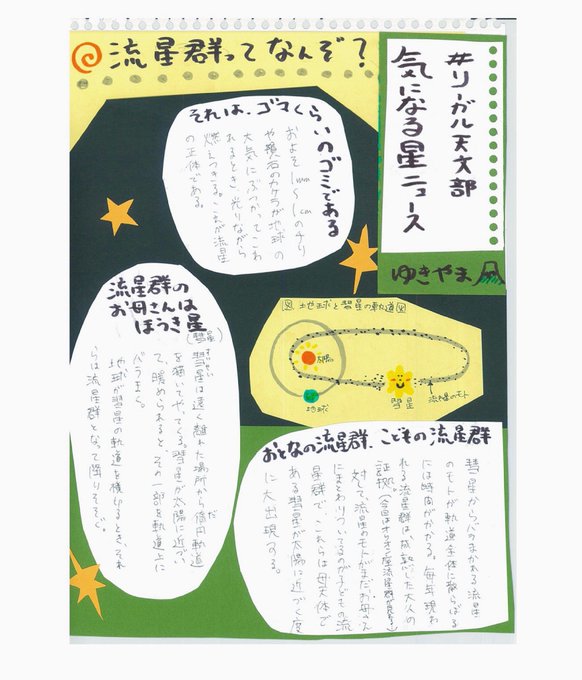 #リーガル天文部
気になる星ニュース
ゆきやま
流星群ってなんぞ?
それは、ゴマくらいのゴミである
およそ1mm〜1cmのチリ
や隕石のカケラが地球の
大気にぶつかってこわ
れるとき、光りながら
燃えつきる。これが流星
の正体である。
図 地球と彗星の軌道
太陽
地球
彗星
流星のモト
流星群の
お母さんは
ほうき星
(彗星)
彗星は遠く離れた場所から楕円軌道
だ
すいせい
を描いてやってくる。彗星が太陽に近づい
て、暖められると、その一部を軌道上に
バラまく。
地球が彗星の軌道を横切るとき、それ
らは流星群となって降りそそぐ。
おとなの流星群、こどもの流星群
彗星からバラまかれる流星
のモトが軌道全体に散らばる
には時間がかかる。毎年現わ
れる流星群は、成熟した大人の
証拠。
対して、流星のモトがまだお母さん
にまとわりついているのが子どもの流
星群で、これらは母天体で
ある彗星が太陽に近づく度
に大出現する。